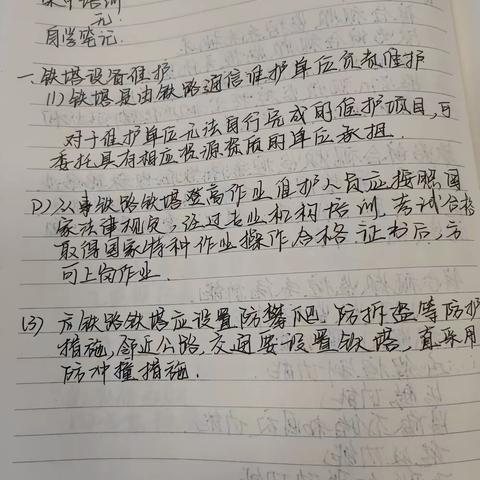 集中培训
无.
自学笔记.
一.铁塔设备维护
(1)铁塔是由铁路通信维护单位负责维护
对于维护单位无法自行完成的维护项目,可
委托具有相应资源资质的单位承担.
(2)从事铁路铁塔登高作业维护人员应按照国
家法律规定,经过专业机构培训,考试合格
取得国家特种作业操作合格证书后,方
可上岗作业.
(3)铁路铁塔应设置防攀爬、防拆盗等防护
措施,邻近公路,交通要设置铁塔,宜采用
防冲撞措施.